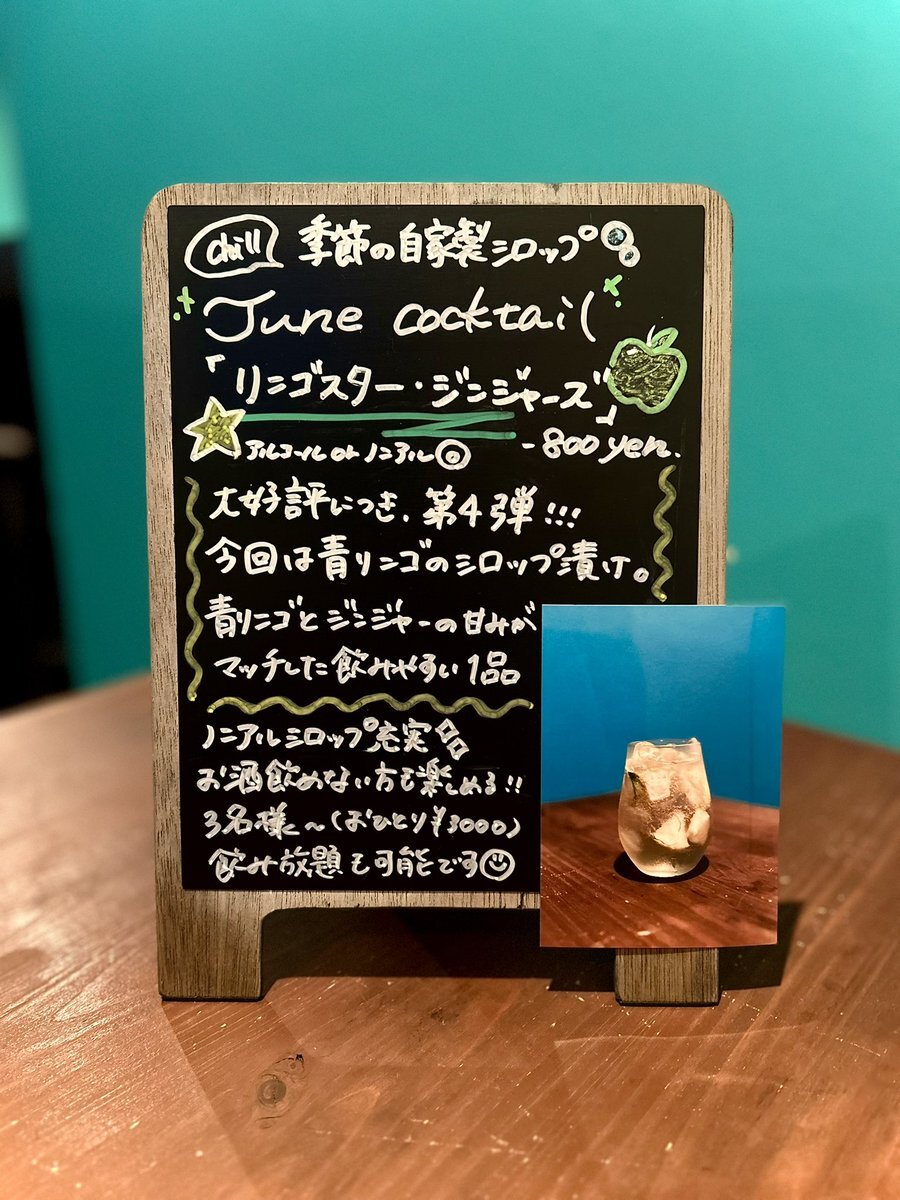 Chill 季節の自家製シロップ
June cocktail
「リンゴスター・ジンジャーズ」
アルコール or ノンアル◎ -800yen.
大好評につき、第4弾!!!
今回は青リンゴのシロップ漬け。
青リンゴとジンジャーの甘みが
マッチした飲みやすい1品
ノンアルシロップ充実
お酒飲めない方も楽しめる!!
3名様〜(おひとり¥3000)
飲み放題も可能です☺